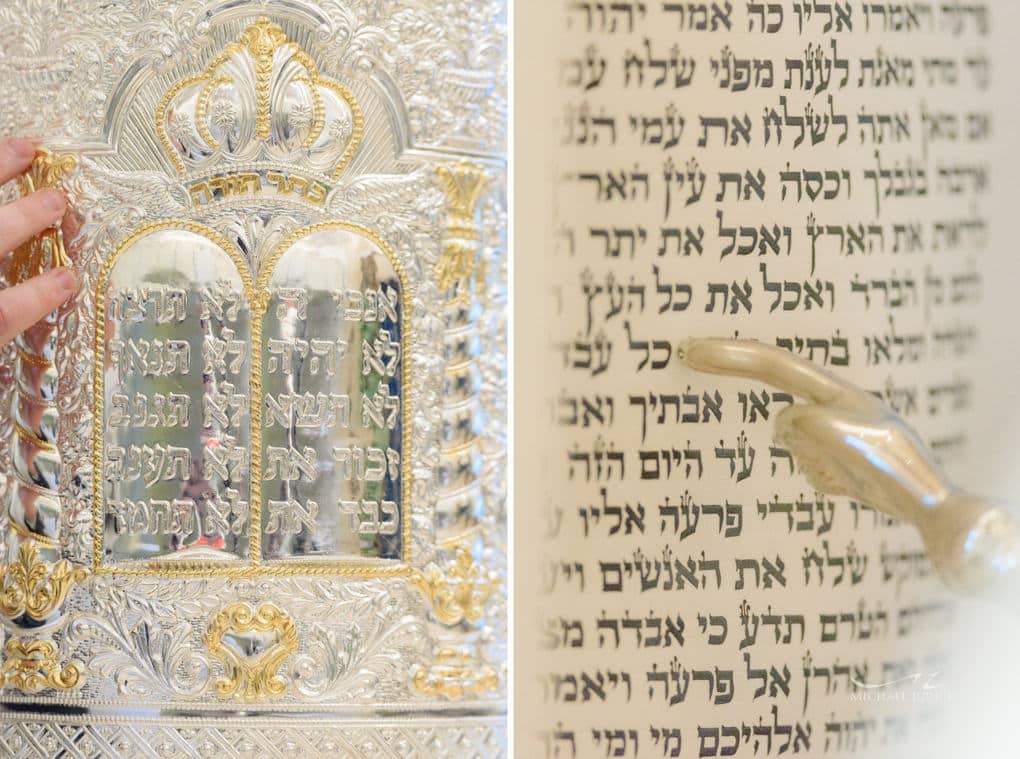 כתר תורה
אנכי ה
לא יהיה
לא תשא
זכור את
כבד את
לא תרצח
לא תנאף
לא תגנב
לא תענה
לא תחמד
פרעה ויאמרו אליו כה אמר יהוה
עד מתי מאנת לענת מפני שלח עמי
אם מאן אתה לשלח את עמי הנני
ארבה בגבלך וכסה את עין הארץ
לראת את הארץ ואכל את יתר
לכם מן הברד ואכל את כל העץ
ומלאו בתיך כל עבד
מצרים אשר ראו אבתיך ואב
עד היום הזה
עבדי פרעה אליו
למוקש שלח את האנשים
הטרם תדע כי אבדה
את אהרן אל פרעה ויאמר
את יהוה אלהיכם מי ומי